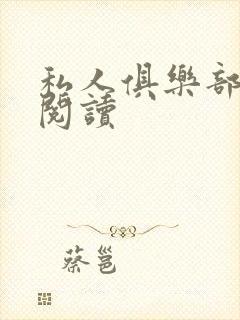 私人俱樂部
閱讀
蔡邕